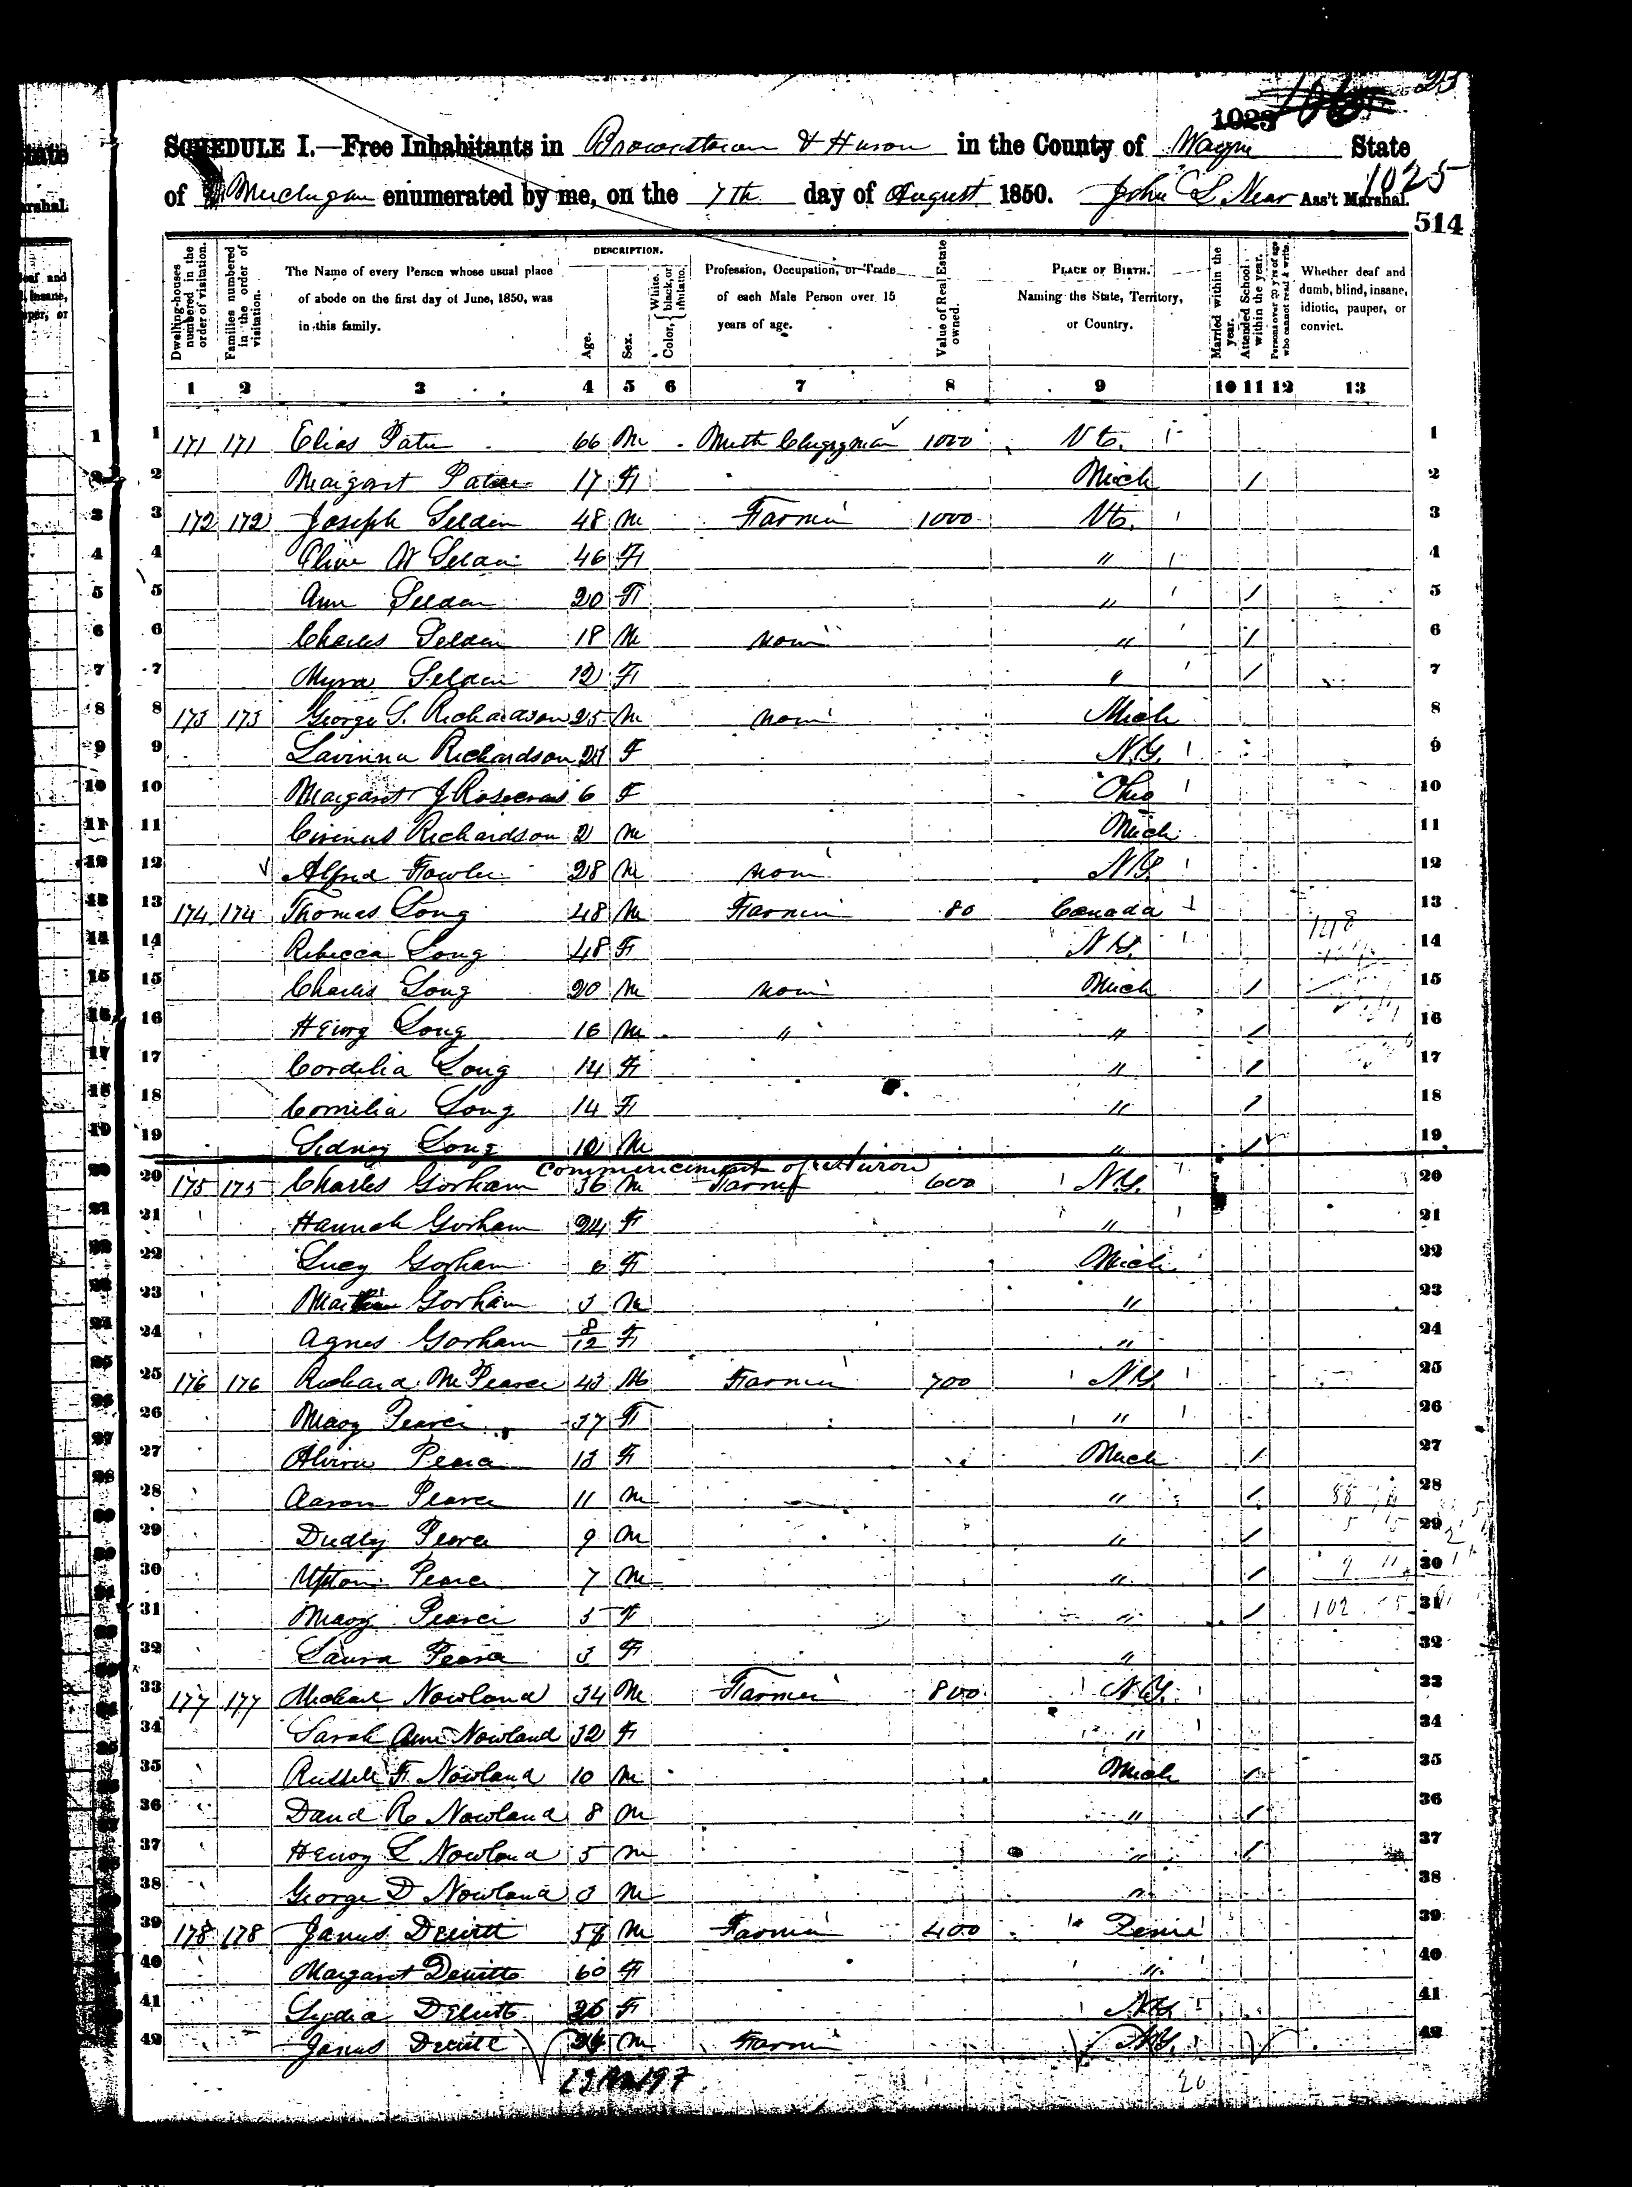 23
1023
SCHEDULE I.—Free Inhabitants in Brownstown & Huron in the County of Wayne State
of Michigan enumerated by me, on the 7th day of August 1850. John L. Near Ass't Marshal.
1025
514
Dwelling-houses numbered in the order of visitation.
Families numbered in the order of visitation.
The Name of every Person whose usual place of abode on the first day of June, 1850, was in this family.
DESCRIPTION.
Age.
Sex.
Color, White, black, or mulatto.
Profession, Occupation, or Trade of each Male Person over 15 years of age.
Value of Real Estate owned.
PLACE OF BIRTH.
Naming the State, Territory, or Country.
Married within the year.
Attended School within the year.
Persons over 20 y'rs of age who cannot read & write.
Whether deaf and dumb, blind, insane, idiotic, pauper, or convict.
1 2 3 4 5 6 7 8 9 10 11 12 13
1 171 171 Elias 66 M Meth Clergyman 1000 Vt. 1
2 Margaret 17 F Mich / 2
3 172 172 Joseph Selden 48 M Farmer 1000 Vt. 3
4 Olive W Selden 46 F " 4
5 Ann Selden 20 F " / 5
6 Charles Selden 18 M none " / 6
7 Myra Selden 12 F " / 7
8 173 173 George S. Richardson 25 M none Mich 8
9 Lavinna Richardson F N.Y. 9
10 Margaret J Rosecrans 6 F Ohio 10
11 Richardson 2 M Mich 11
12 Alfred Fowler 28 M none N.Y. 12
13 174 174 Thomas Long 48 M Farmer 80 Canada 13
14 Rebecca Long 48 F N.Y. 14
15 Charles Long 20 M none Mich / 15
16 Henry Long 16 M " " / 16
17 Cordelia Long 14 F " / 17
18 Cornelia Long 14 F " / 18
19 Sidney Long 10 M " / 19
Commencement of Huron
20 175 175 Charles Gorham 36 M Farmer 600 N.Y. 20
21 Hannah Gorham 24 F " 21
22 Lucy Gorham 6 F Mich 22
23 Gorham 3 M " 23
24 Agnes Gorham 8/12 F " 24
25 176 176 Richard M Pearce 43 M Farmer 700 N.Y. 25
26 Mary Pearce 37 F " 26
27 Alvira Pearce 13 F Mich / 27
28 Aaron Pearce 11 M " / 28
29 Dudley Pearce 9 M " / 29
30 Upton Pearce 7 M " / 30
31 Mary Pearce 5 F " / 102 31
32 Laura Pearce 3 F " 32
33 177 177 Michael Nowland 34 M Farmer 800 N.Y. 33
34 Sarah Ann Nowland 32 F " 34
35 Russell F. Nowland 10 M Mich / 35
36 David R Nowland 8 M " / 36
37 Henry L Nowland 5 M " / 37
38 George D Nowland 3 M " 38
39 178 178 James Dewitt M Farmer 400 Penn 39
40 Margaret Dewitt 60 F " 40
41 Lydia Dewitt 26 F N.Y. 41
42 James Dewitt M Farmer N.Y. 42
20